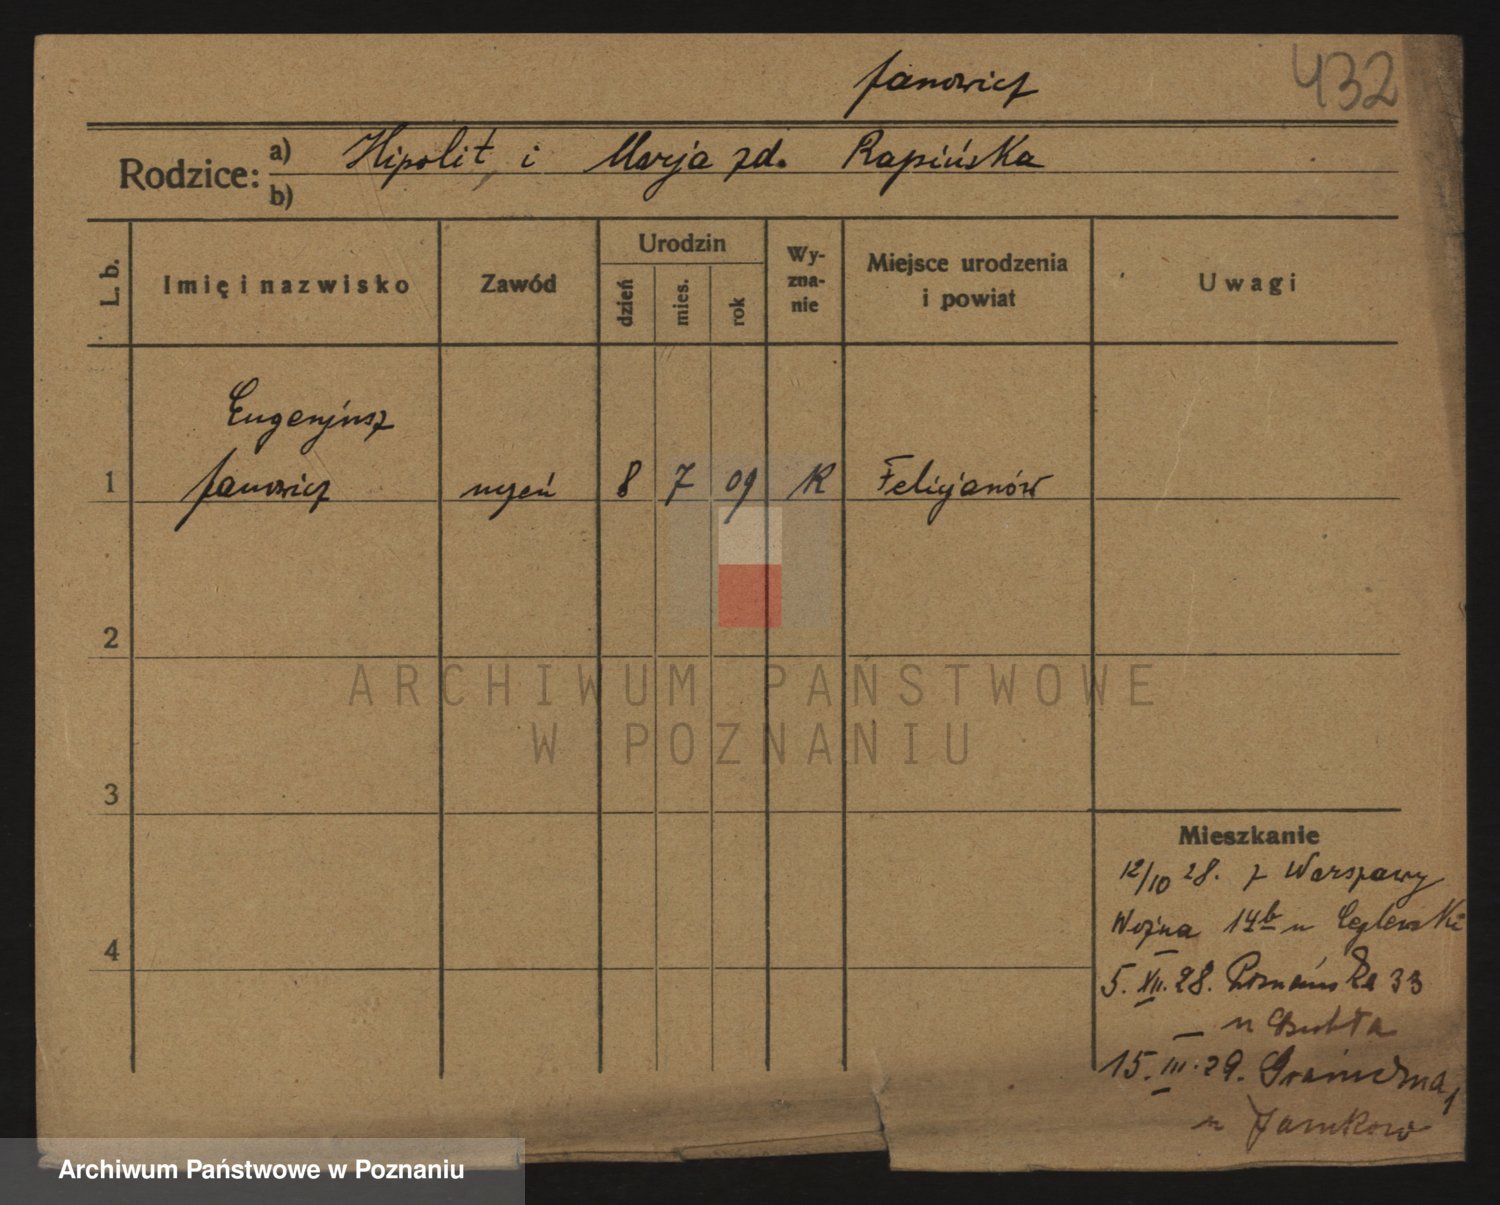 Janowicz
432
Rodzice: a) Hipolit i Marja zd. Rapińska
b)
L. b.
Imię i nazwisko
Zawód
Urodzin
dzień
mies.
rok
Wy-
zna-
nie
Miejsce urodzenia
i powiat
Uwagi
Eugenjusz
1 Janowicz uczeń 8 7 09 K Felicjanów
2
3
4
Mieszkanie
12/10 28. z Warszawy
14b u
5. XII. 28. Poznańska 33
u
15. III. 29. Graniczna 1
u
ARCHIWUM PAŃSTWOWE
W POZNANIU
Archiwum Państwowe w Poznaniu